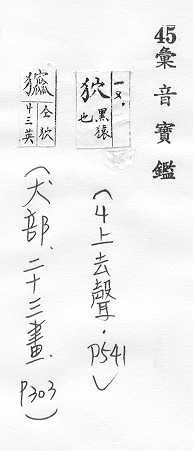 45彙音寶鑑
一又.
狖 黑猿也
(4上去聲.P541)
仝狖
(犬部、二十三畫.P303)